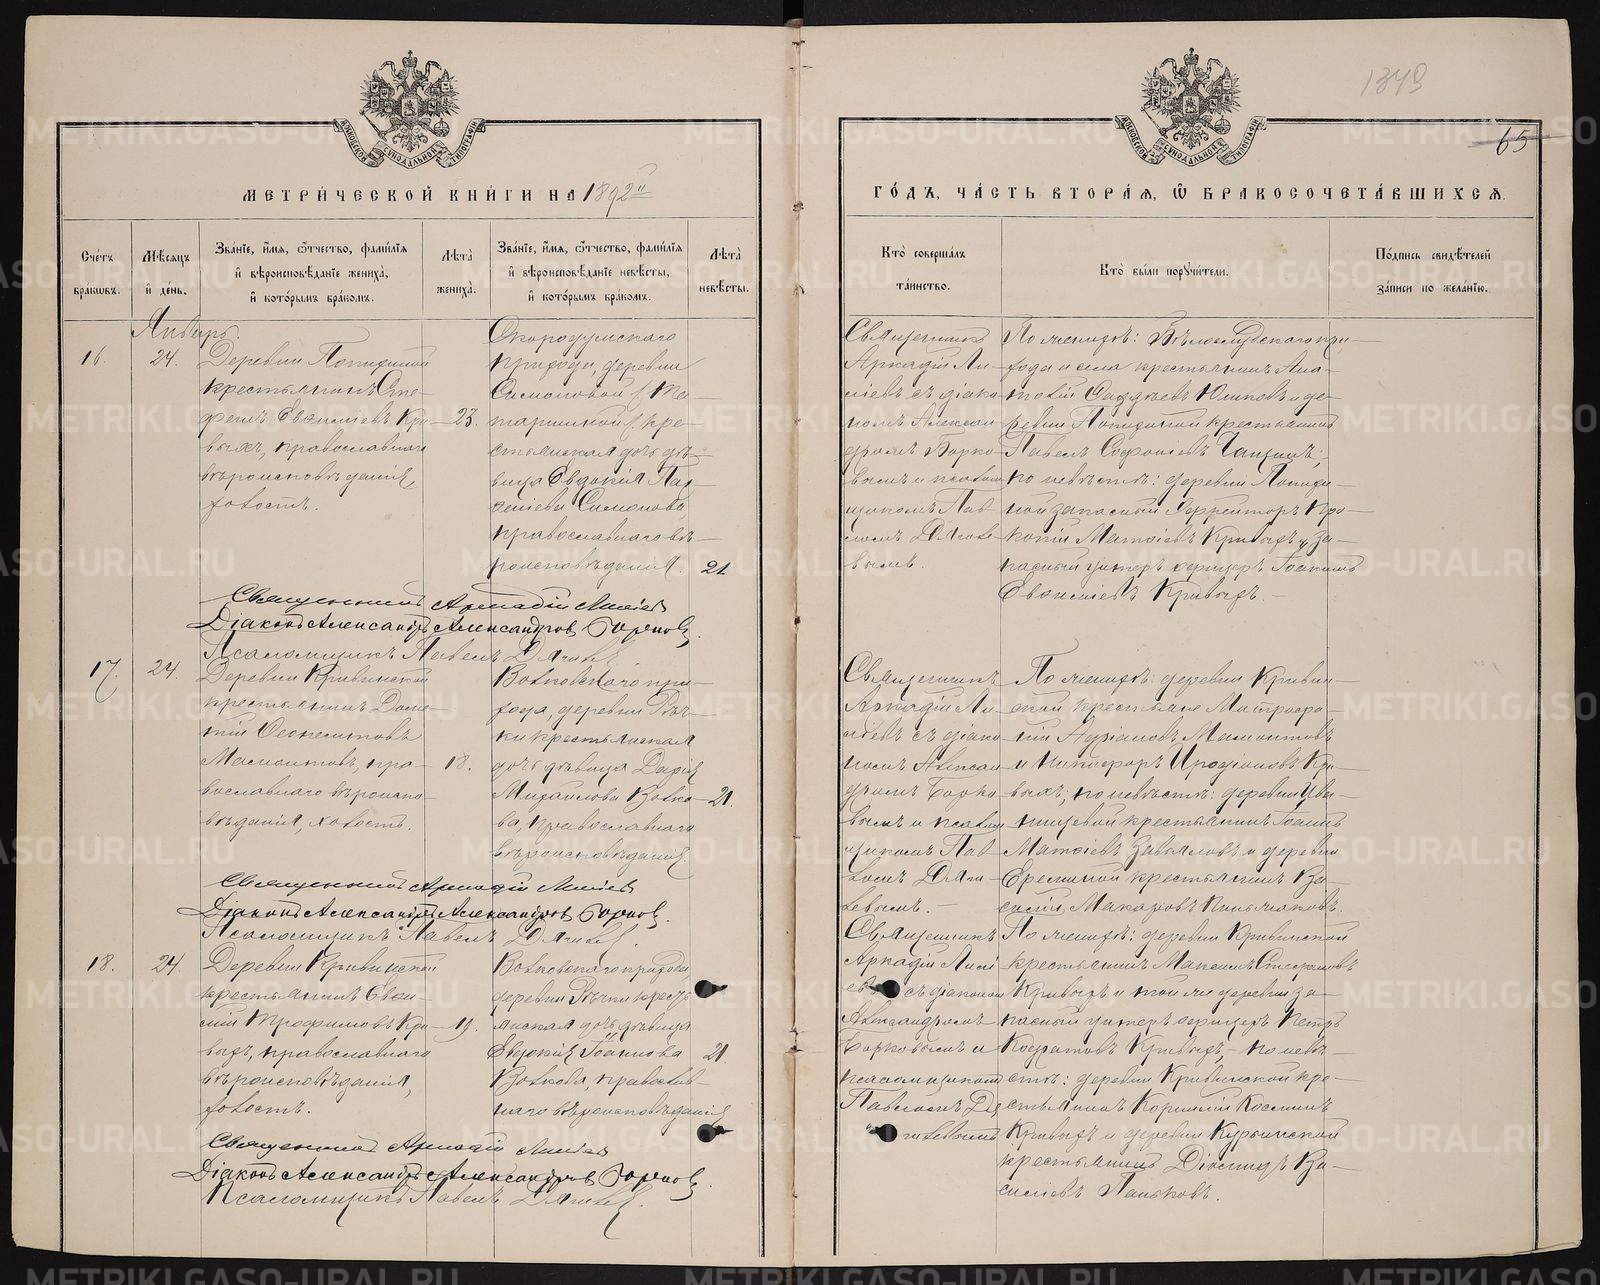 1343
65
МЕТРИЧЕСКОЙ КНИГИ НА 1892й
ГОДЪ, ЧАСТЬ ВТОРАЯ, Ѡ БРАКОСОЧЕТАВШИХСЯ.
Счетъ браковъ.
Мѣсяцъ и день.
Званіе, имя, ѿтчество, фамилія и вѣроисповѣданіе жениха, и которымъ бракомъ.
Лѣта жениха.
Званіе, имя, ѿтчество, фамилія и вѣроисповѣданіе невѣсты, и которымъ бракомъ.
Лѣта невѣсты.
Кто совершалъ таинство.
Кто были поручители.
Подпись свидѣтелей записи по желанію.
Январь.
16.
24.
Деревни
крестьянинъ Сте-
фанъ Евсиміевъ Кри-
выхъ, православнаго
вѣроисповѣданія,
холостъ.
23.
Скородумскаго
прихода, деревни
Симоновой
крe-
стьянская дочь дѣ-
вица Евдокія
Симонова,
православнаго вѣ-
роисповѣданія.
21.
Священникъ
Аркадій Ли-
сіевъ съ діако-
номъ Алексан-
дромъ Горно-
вымъ и псалом-
щикомъ Пав-
ломъ Дягиле-
вымъ.
По женихѣ:
хода и села крестьянинъ
Юшковъ и де-
ревни крестьянинъ
Павелъ
по невѣстѣ: деревни
ной запасный ефрейторъ Про-
копій Матѳіевъ Кривыхъ и за-
пасный унтеръ офицеръ Іоакимъ
Евсиміевъ Кривыхъ.
Священникъ Аркадій Лисіевъ
Діаконъ Александръ Александровъ Горновъ.
Псаломщикъ Павелъ Дягилевъ.
17.
24.
Деревни Кривинской
крестьянинъ Доме-
тій Ѳеоктистовъ
Мамонтовъ, пра-
вославнаго вѣроиспо-
вѣданія, холостъ.
18.
Волковскаго при-
хода, деревни Рѣч-
ки крестьянская
дочь дѣвица Дарія
Михаилова Волко-
ва, православнаго
вѣроисповѣданія
21.
Священникъ
Аркадій Ли-
сіевъ съ діако-
номъ Алексан-
дромъ Горно-
вымъ и псалом-
щикомъ Пав-
ломъ Дяги-
левымъ.
По женихѣ: деревни Кривин-
ской крестьяне Митрофа-
ній Адріановъ Мамонтовъ
и Никифоръ Иродіоновъ Кри-
выхъ; по невѣстѣ: деревни
крестьянинъ Іоаннъ
Матѳіевъ Завьяловъ и деревни
Ереминой крестьянинъ Ва-
силій Макаровъ
Священникъ Аркадій Лисіевъ
Діаконъ Александръ Александровъ Горновъ.
Псаломщикъ Павелъ Дягилевъ.
18.
24.
Деревни Кривинской
крестьянинъ Евси-
мій Трофимовъ Кри-
выхъ, православнаго
вѣроисповѣданія,
холостъ.
19.
Волковскаго прихода
деревни Рѣчки кресть-
янская дочь дѣвица
Евдокія Іоаннова
Волкова, православ-
наго вѣроисповѣданія
21.
Священникъ
Аркадій Лисі-
евъ съ діакономъ
Александромъ
Горновымъ и
псаломщикомъ
Павломъ Дя-
гилевымъ
По женихѣ: деревни Кривинской
крестьянинъ Максимъ Стефановъ
Кривыхъ и той же деревни за-
пасный унтеръ офицеръ Петръ
Кодратовъ Кривыхъ, по невѣ-
стѣ: деревни Кривинской кре-
стьянинъ Корнилій Косминъ
Кривыхъ и деревни Курьинской
крестьянинъ Діомидъ Ва-
силіевъ Паньковъ.
Священникъ Аркадій Лисіевъ
Діаконъ Александръ Александровъ Горновъ.
Псаломщикъ Павелъ Дягилевъ.
METRIKI.GASO-URAL.RU